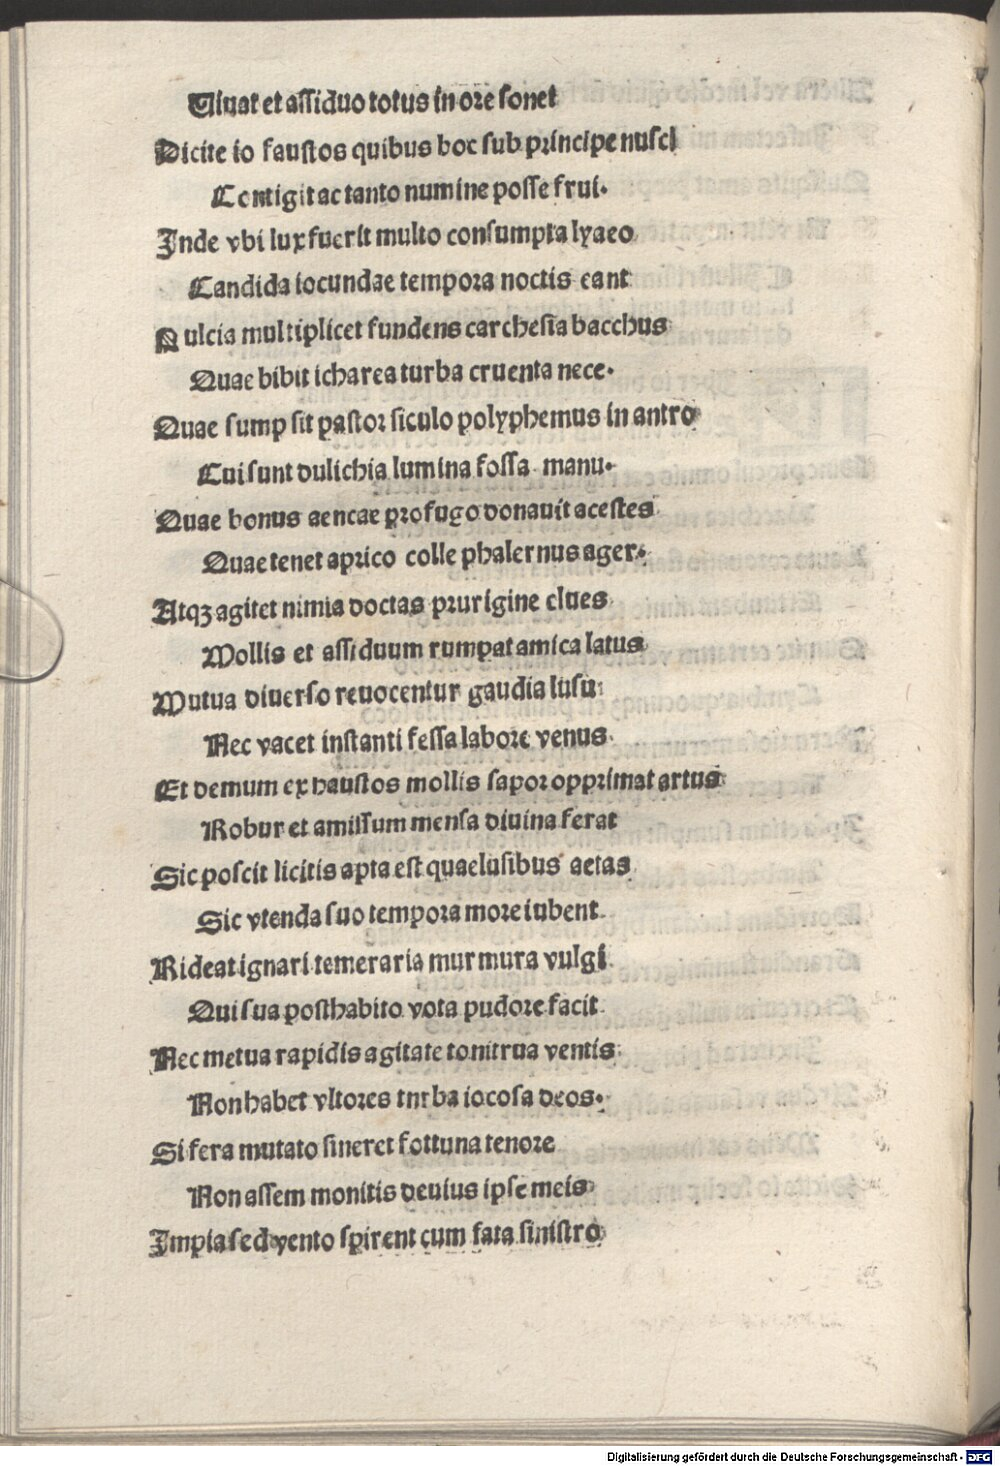 Viuat et assiduo totus in ore sonet
Dicite io faustos quibus hoc sub principe nusci
Contigit ac tanto numine posse frui.
Inde vbi lux fuerit multo consumpta lyaeo
Candida iocundae tempora noctis eant
Dulcia multiplicet fundens carchesia bacchus
Quae bibit icharea turba cruenta nece.
Quae sumpsit pastor siculo polyphemus in antro
Cui sunt dulichia lumina fossa manu.
Quae bonus aeneae profugo donauit acestes
Quae tenet aprico colle phalernus ager.
Atqꝫ agitet nimia doctas prurigine clues
Mollis et assiduum rumpat amica latus
Mutua diuerso reuocentur gaudia lusu:
Nec vacet instanti fessa labore venus.
Et demum exhaustos mollis sapor opprimat artus
Robur et amissum mensa diuina ferat
Sic poscit licitis apta est quae lusibus aetas
Sic vtenda suo tempora more iubent.
Rideat ignari temeraria murmura vulgi
Qui sua posthabito vota pudore facit.
Nec metua rapidis agitate tonitrua ventis:
Non habet vltores tnrba iocosa deos.
Si fera mutato sineret fottuna tenore
Non assem monitis deuius ipse meis
Impia sed vento spirent cum fata sinistro
Digitalisierung gefördert durch die Deutsche Forschungsgemeinschaft - DFG